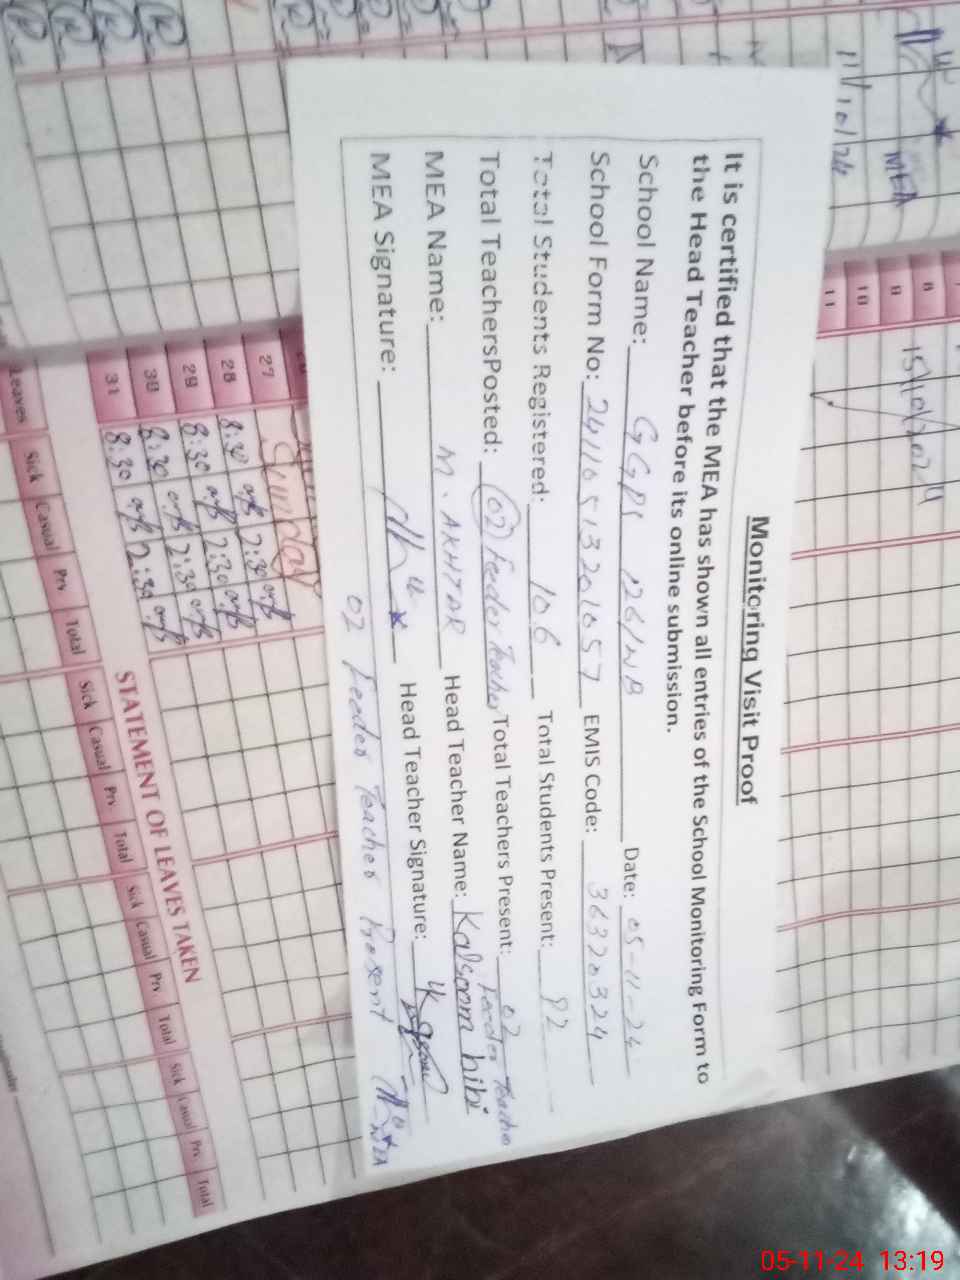 Monitoring Visit Proof
It is certified that the MEA has shown all entries of the School Monitoring Form to
the Head Teacher before its online submission.
School Name: GGPS 126/NB Date: 05-11-24
School Form No: 24110513201057 EMIS Code: 36320324
Total Students Registered: 106 Total Students Present: 92
Total TeachersPosted: 02 Feeder Teacher Total Teachers Present: 02 Feeder Teacher
MEA Name: M. AKHTAR Head Teacher Name: Kalsoom bibi
MEA Signature: Head Teacher Signature:
02 Feeder Teacher Present
11/10/24
MEA
8
9
10
11
15/10/2024
27
Sunday
28 8:30 2:30
29 8:30 2:30
30 8:30 2:30
31 8:30 2:30
STATEMENT OF LEAVES TAKEN
Leaves Sick Casual Prv. Total Sick Casual Prv. Total Sick Casual Prv. Total Sick Casual Prv. Total
05-11-24 13:19